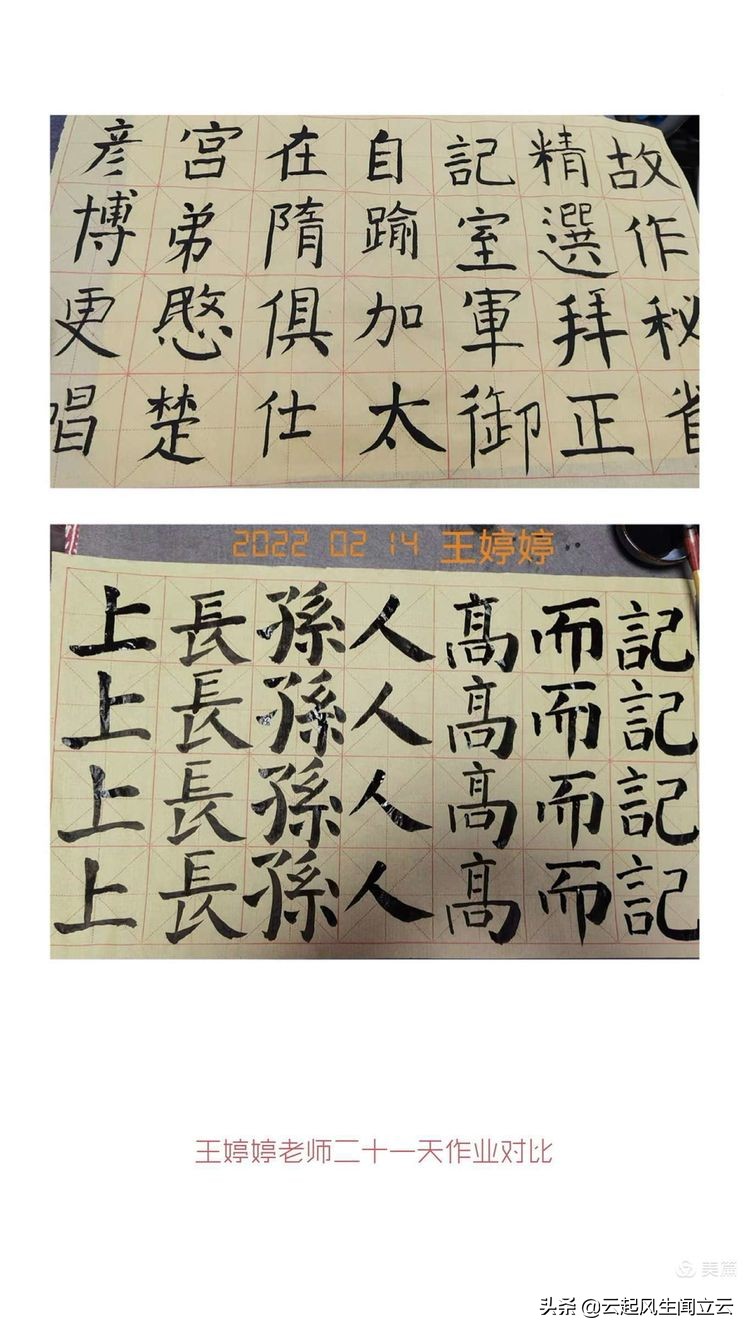 故作秘省
精選拜正
記室軍御
自踰加太
在隋俱仕
宮弟愍楚
彦博更唱
2022 02 14 王婷婷
記記記記
而而而而
髙髙髙髙
人人人人
孫孫孫孫
長長長長
上上上上
王婷婷老师二十一天作业对比
美篇
头条 @云起风生闻立云